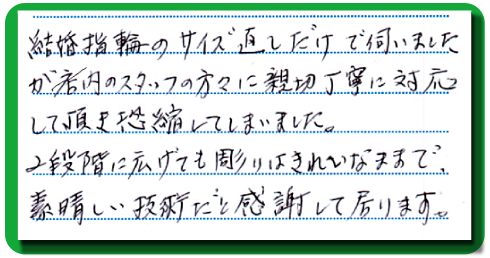 結婚指輪のサイズ直しだけで伺いました
が店内のスタッフの方々に親切丁寧に対応
して頂き恐縮してしまいました。
2段階に広げても彫りはきれいなままで、
素晴しい技術だと感謝して居ります。